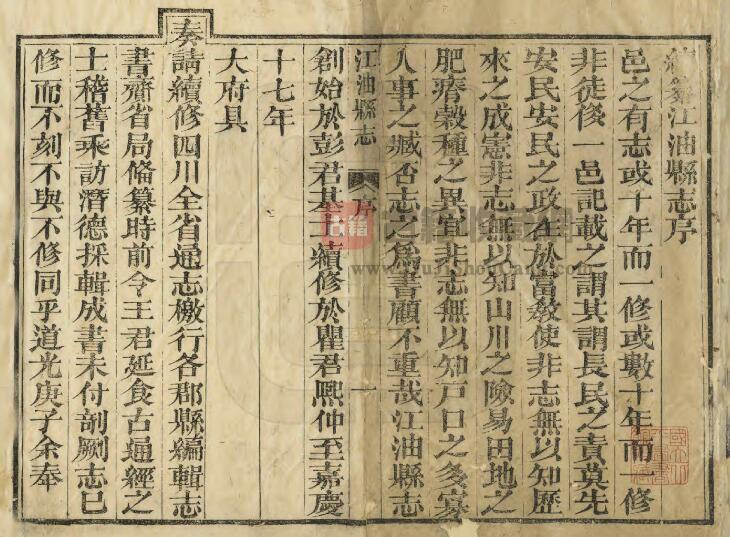 續纂江油縣志序
邑之有志或十年而一修或數十年而一修
非徒侈一邑記載之謂其謂長民之責莫先
安民安民之政在於富教使非志無以知歷
來之成憲非志無以知山川之險易田地之
肥瘠穀種之異宜非志無以知戸口之多寡
人事之臧否志之爲書顧不重哉江油縣志
江油縣志 序 一
創始於彭君基士續修於瞿君熙仲至嘉慶
十七年
大府具
奏請續修四川全省通志檄行各郡縣編輯志
書齎省局俻纂時前令王君延食古通經之
士稽舊乘訪濟德採輯成書未付剞劂志巳
修而不刻不與不修同乎道光庚子余奉
古籍
www.gujishuncang.com